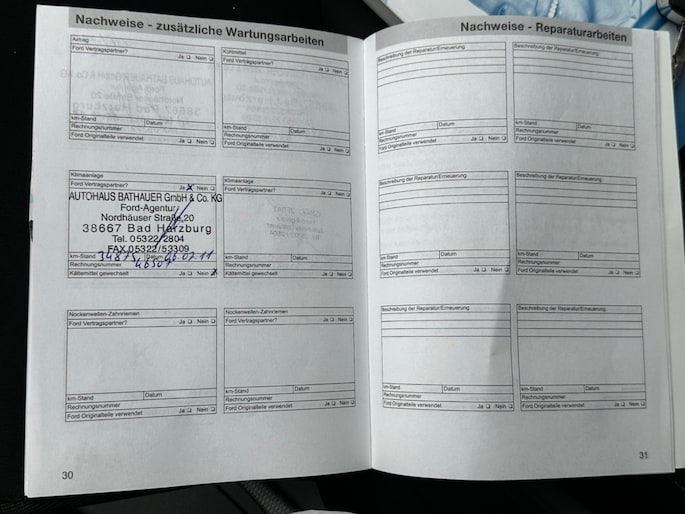 Nachweise - zusätzliche Wartungsarbeiten
Antrag
Ford Vertragspartner? Ja ❑ Nein ❑
km-Stand Datum
Rechnungsnummer
Ford Originalteile verwendet Ja ❑ Nein ❑
Kühlmittel
Ford Vertragspartner? Ja ❑ Nein ❑
km-Stand Datum
Rechnungsnummer
Ford Originalteile verwendet Ja ❑ Nein ❑
Klimaanlage
Ford Vertragspartner? Ja ❑ Nein ❑
AUTOHAUS BATHAUER GmbH & Co. KG
Ford-Agentur
Nordhäuser Straße 20
38667 Bad Harzburg
Tel. 05322/2804
FAX 05322/53309
km-Stand Datum
Rechnungsnummer
Kältemittel gewechselt Ja ❑ Nein ❑
Klimaanlage
Ford Vertragspartner? Ja ❑ Nein ❑
km-Stand Datum
Rechnungsnummer
Kältemittel gewechselt Ja ❑ Nein ❑
Nockenwellen-Zahnriemen
Ford Vertragspartner? Ja ❑ Nein ❑
km-Stand Datum
Rechnungsnummer
Ford Originalteile verwendet Ja ❑ Nein ❑
Nockenwellen-Zahnriemen
Ford Vertragspartner? Ja ❑ Nein ❑
km-Stand Datum
Rechnungsnummer
Ford Originalteile verwendet Ja ❑ Nein ❑
30
Nachweise - Reparaturarbeiten
Beschreibung der Reparatur/Erneuerung
km-Stand Datum
Rechnungsnummer
Ford Originalteile verwendet Ja ❑ Nein ❑
Beschreibung der Reparatur/Erneuerung
km-Stand Datum
Rechnungsnummer
Ford Originalteile verwendet Ja ❑ Nein ❑
Beschreibung der Reparatur/Erneuerung
km-Stand Datum
Rechnungsnummer
Ford Originalteile verwendet Ja ❑ Nein ❑
Beschreibung der Reparatur/Erneuerung
km-Stand Datum
Rechnungsnummer
Ford Originalteile verwendet Ja ❑ Nein ❑
Beschreibung der Reparatur/Erneuerung
km-Stand Datum
Rechnungsnummer
Ford Originalteile verwendet Ja ❑ Nein ❑
Beschreibung der Reparatur/Erneuerung
km-Stand Datum
Rechnungsnummer
Ford Originalteile verwendet Ja ❑ Nein ❑
31